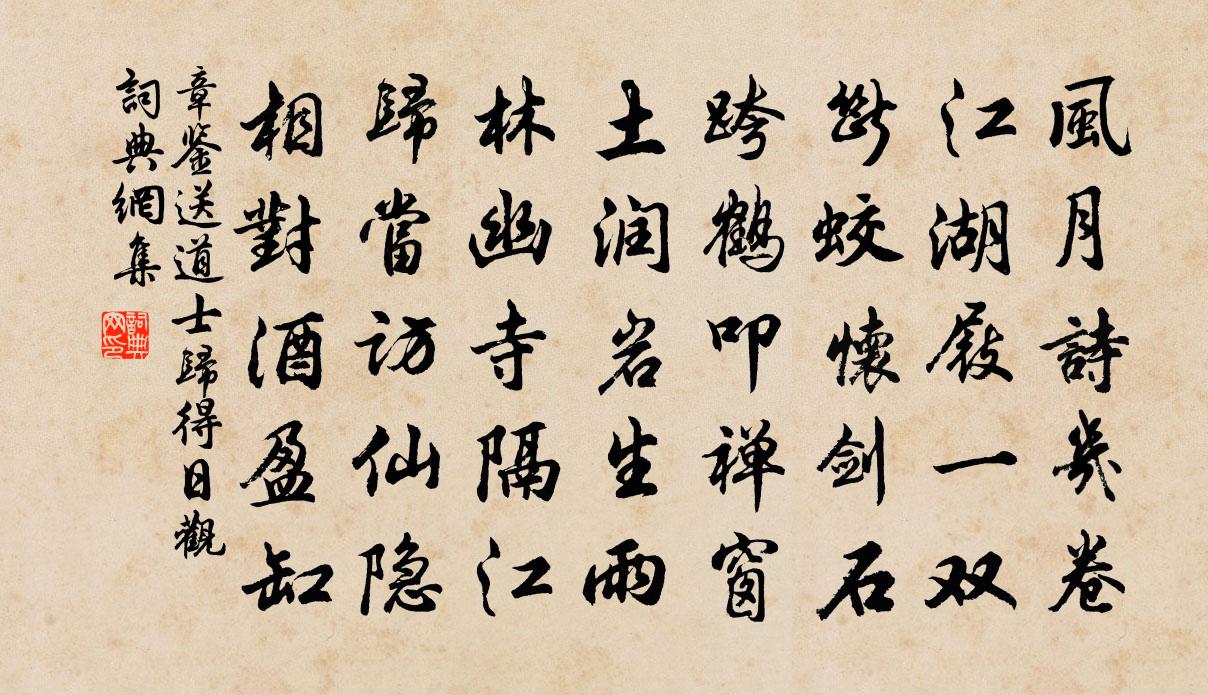 風月詩幾卷
江湖屐一双
斷蛟懷剑石
跨鹤叩禅窗
土润岩生雨
林幽寺隔江
歸當访仙隐
相對酒盈缸
章鉴送道士歸得日觀
詞典網集
詞典网印